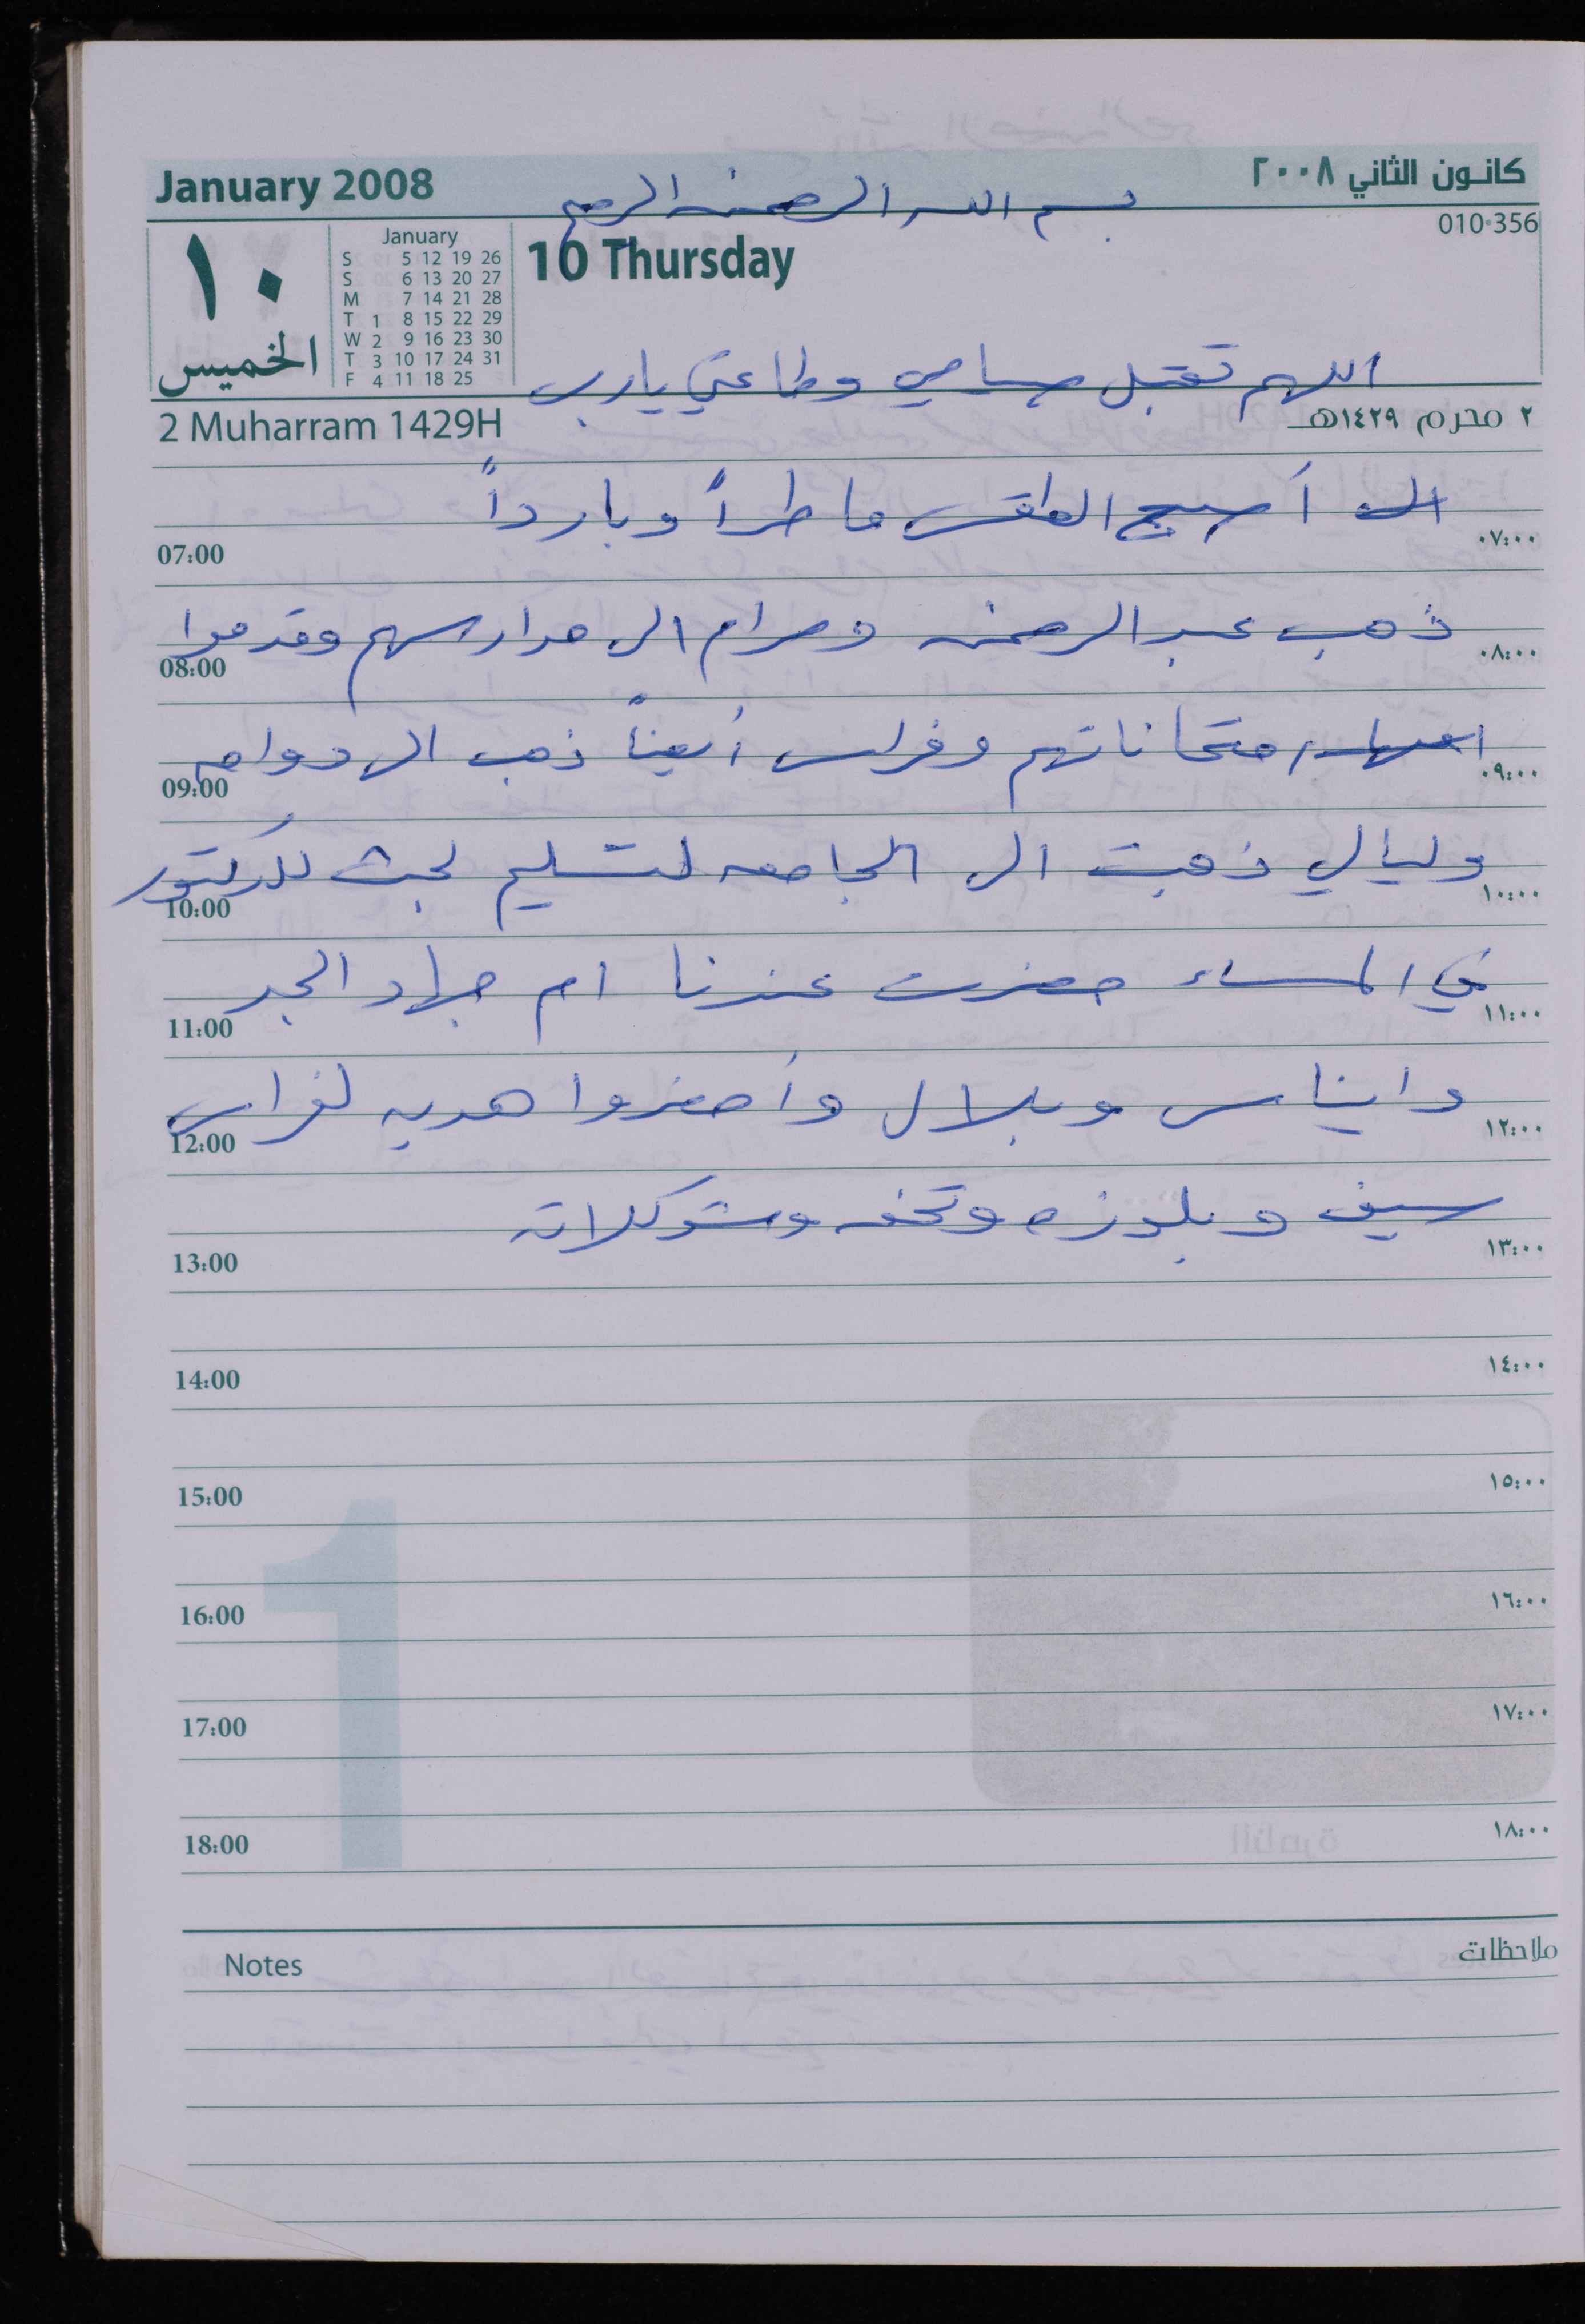 January 2008
كانون الثاني ٢٠٠٨
بسم الله الرحمن الرحيم
010-356
١٠
الخميس
January
S 5 12 19 26
S 6 13 20 27
M 7 14 21 28
T 1 8 15 22 29
W 2 9 16 23 30
T 3 10 17 24 31
F 4 11 18 25
10 Thursday
اللهم تقبل صيامي وطاعتي يارب
2 Muharram 1429H
٢ محرم ١٤٢٩هـ
أصبح الطقس ماطراً وبارداً
07:00 ٠٧:٠٠
ذهب عبدالرحمن ومرام الى مدارسهم وقدموا
08:00 ٠٨:٠٠
امتحاناتهم وفراس أيضاً ذهب الى دوامه
09:00 ٠٩:٠٠
وليالي ذهبت الى الجامعه لتسليم بحث للدكتور
10:00 ١٠:٠٠
في المساء حضرت عندنا ام جهاد
11:00 ١١:٠٠
وايناس وبلال وأحضروا هديه لفراس
12:00 ١٢:٠٠
وبلوزه وتحفه وشوكلاته
13:00 ١٣:٠٠
14:00 ١٤:٠٠
15:00 ١٥:٠٠
1
16:00 ١٦:٠٠
17:00 ١٧:٠٠
18:00 ١٨:٠٠
Notes
ملاحظات